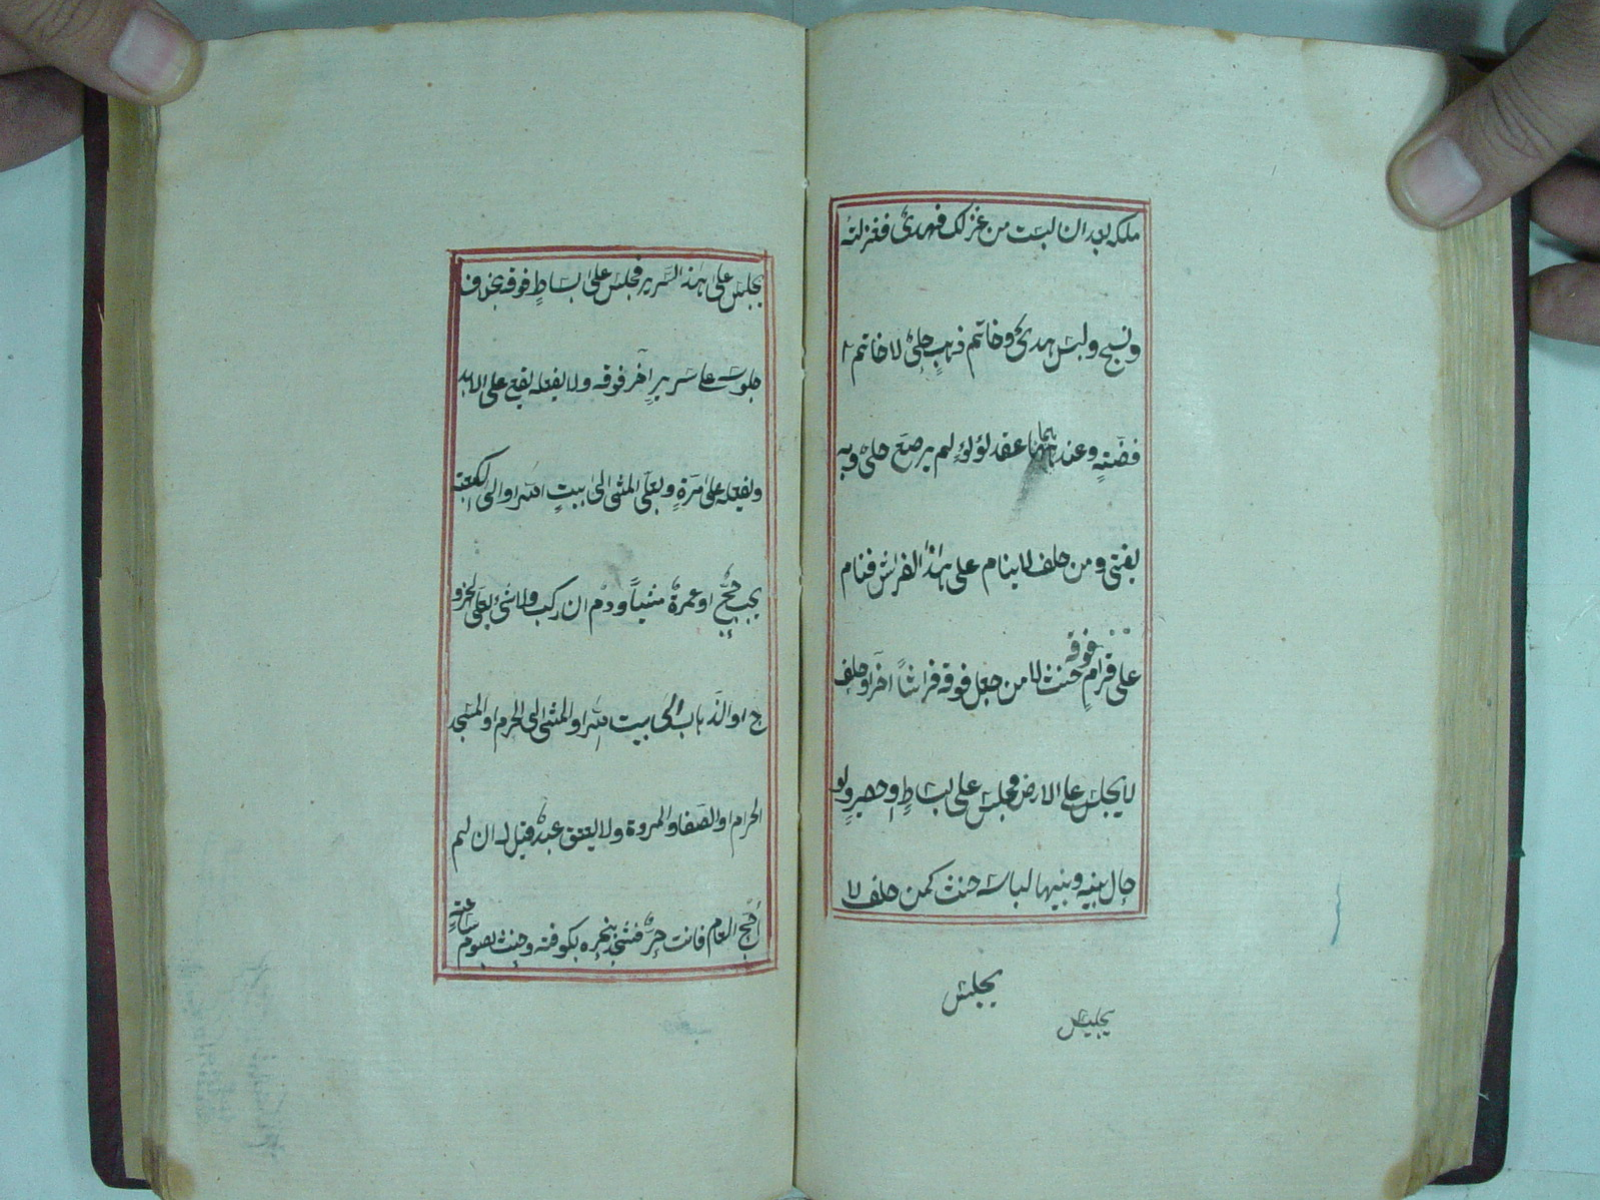 ملكه بعد ان لبست من غزلك فهدیٌ فغزلته
ونسج ولبس هدیٌ وخاتم ذهبٍ حلیٌ لا خاتم
فضّةٍ وعندهما عقد لؤلؤٍ لم يرصّع حلیٌ وبه
يفتی ومن حلف لا ينام علی هذا الفراش فنام
علی قرامٍ فوقه حنث لا من جعل فوقه فراشاً آخر او حلف
لا يجلس علی الارض فجلس علی بساطٍ او حصيرٍ ولو
حال بينه وبينها لباسه حنث كمن حلف لا
يجلس
يجلس
يجلس علی هذا السّرير فجلس علی بساطٍ فوقه بخلاف
جلوسه علی سريرٍ آخر فوقه ولا يفعله يقع علی الابد
ويفعله علی مرّةٍ وبعلیّ المشی الی بيت اللّه او الی الكعبة
يجب حجٌّ او عمرةٌ مشياً ودمٌ ان ركب ولا شیٔ بعلیّ الخرو
ج او الذّهاب الی بيت اللّه او المشی الی الحرم او المسجد
الحرام او الصّفا والمروة ولا يعتق عبدٌ قيل له ان لم
احجّ العام فانت حرٌّ فشهد بنحره بكوفة وحنث بصوم ساعةٍ